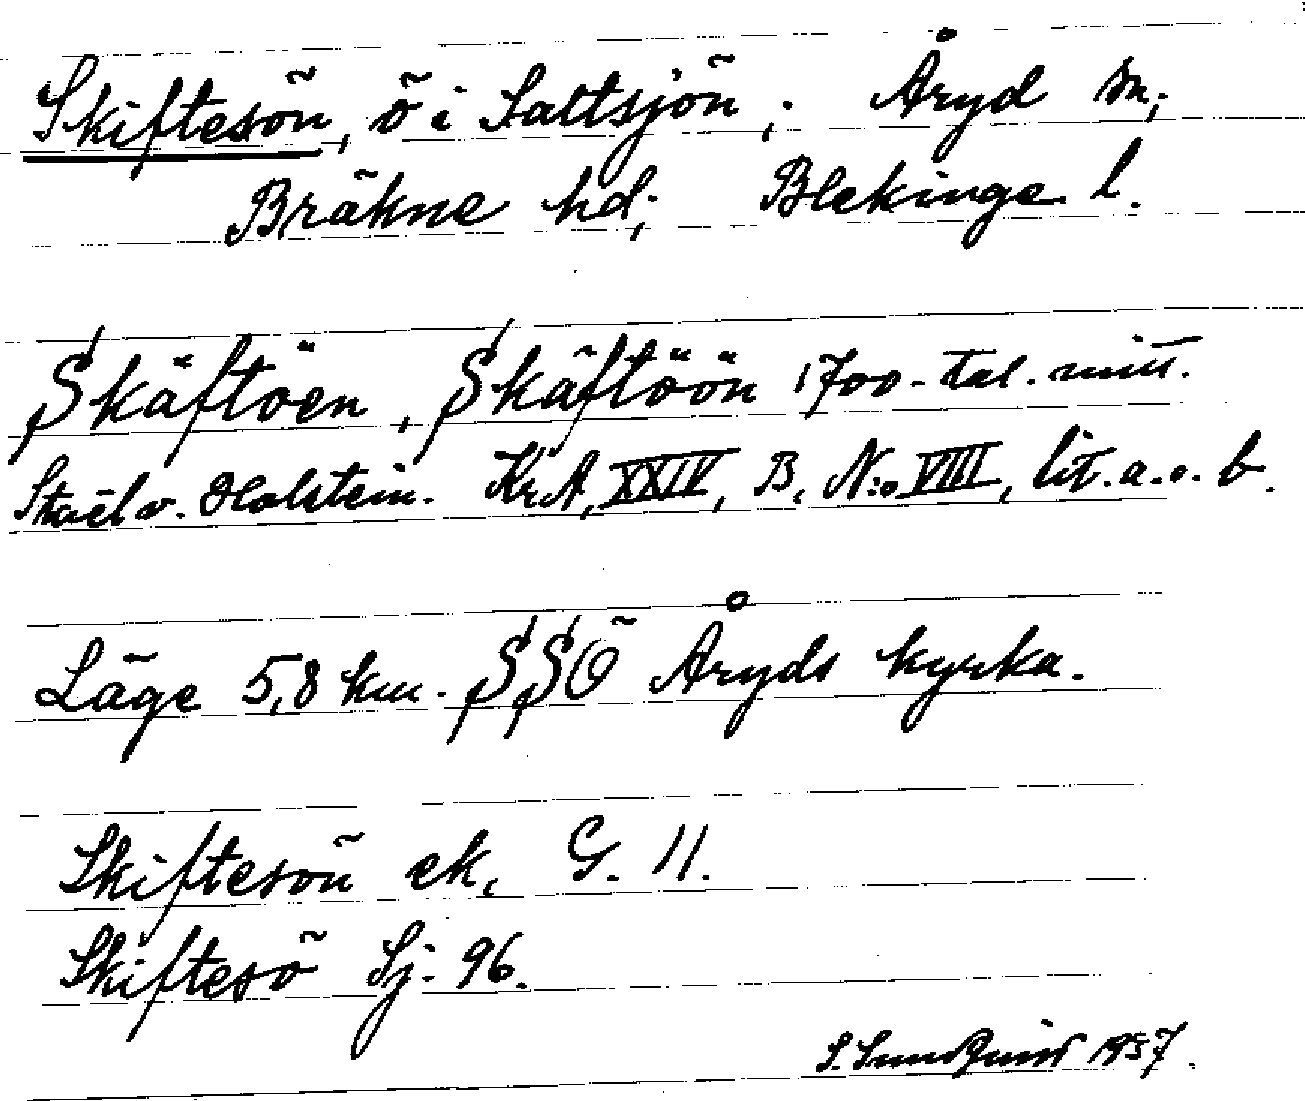 Skiftesön, ö i Saltsjön; Åryd sn;
Bräkne hd; Blekinge l.
Skäftöen, Skäftöön 1700-tal. mitt.
Staël v. Holstein. KrA, XXIV, B, N:o VIII, lit. a. o. b.
Läge 5,8 km. SSÖ Åryds kyrka.
Skiftesön ek. G. 11.
Skiftesö Sj. 96.
S. Sundquist 1937.